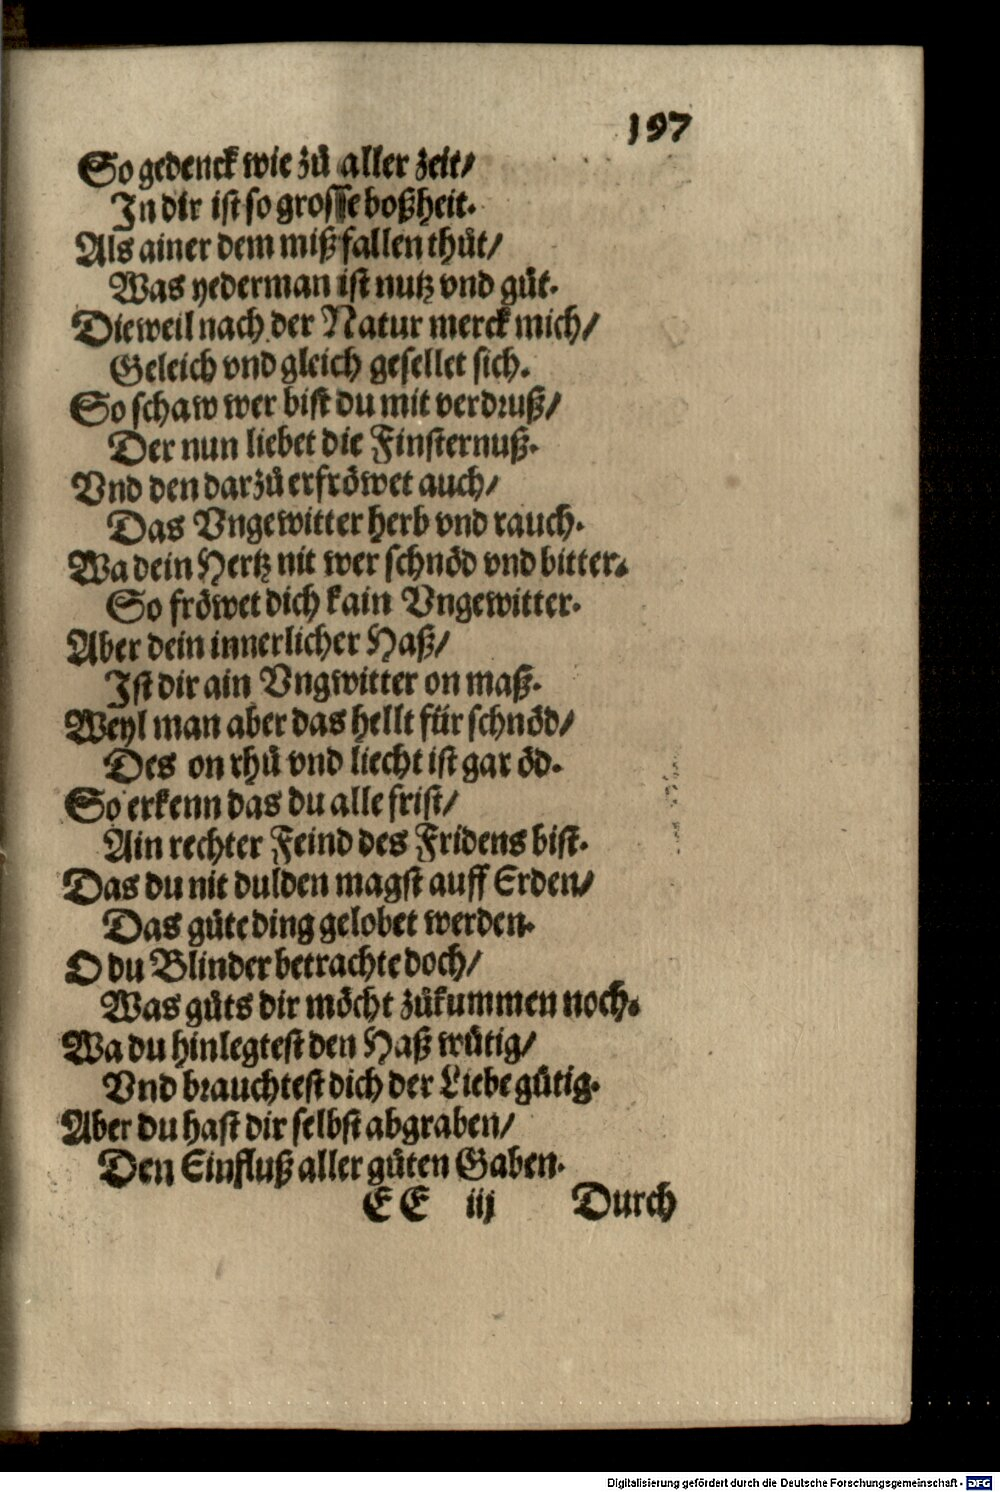 197
So gedenck wie zů aller zeit/
In dir ist so grosse boßheit.
Als ainer dem mißfallen thůt/
Was yederman ist nutz vnd gůt.
Dieweil nach der Natur merck mich/
Geleich vnd gleich gesellet sich.
So schaw wer bist du mit verdruß/
Der nun liebet die Finsternuß.
Vnd den darzů erfröwet auch/
Das Vngewitter herb vnd rauch.
Wa dein Hertz nit wer schnöd vnd bitter.
So fröwet dich kain Vngewitter.
Aber dein innerlicher Haß/
Ist dir ain Vngwitter on maß.
Weyl man aber das hellt für schnöd/
Des on rhů vnd liecht ist gar öd.
So erkenn das du alle frist/
Ain rechter Feind des Fridens bist.
Das du nit dulden magst auff Erden/
Das gůte ding gelobet werden.
O du Blinder betrachte doch/
Was gůts dir möcht zůkummen noch.
Wa du hinlegtest den Haß wůtig/
Vnd brauchtest dich der Liebe gůtig.
Aber du hast dir selbst abgraben/
Den Einfluß aller gůten Gaben.
EE iij Durch
Digitalisierung gefördert durch die Deutsche Forschungsgemeinschaft - DFG